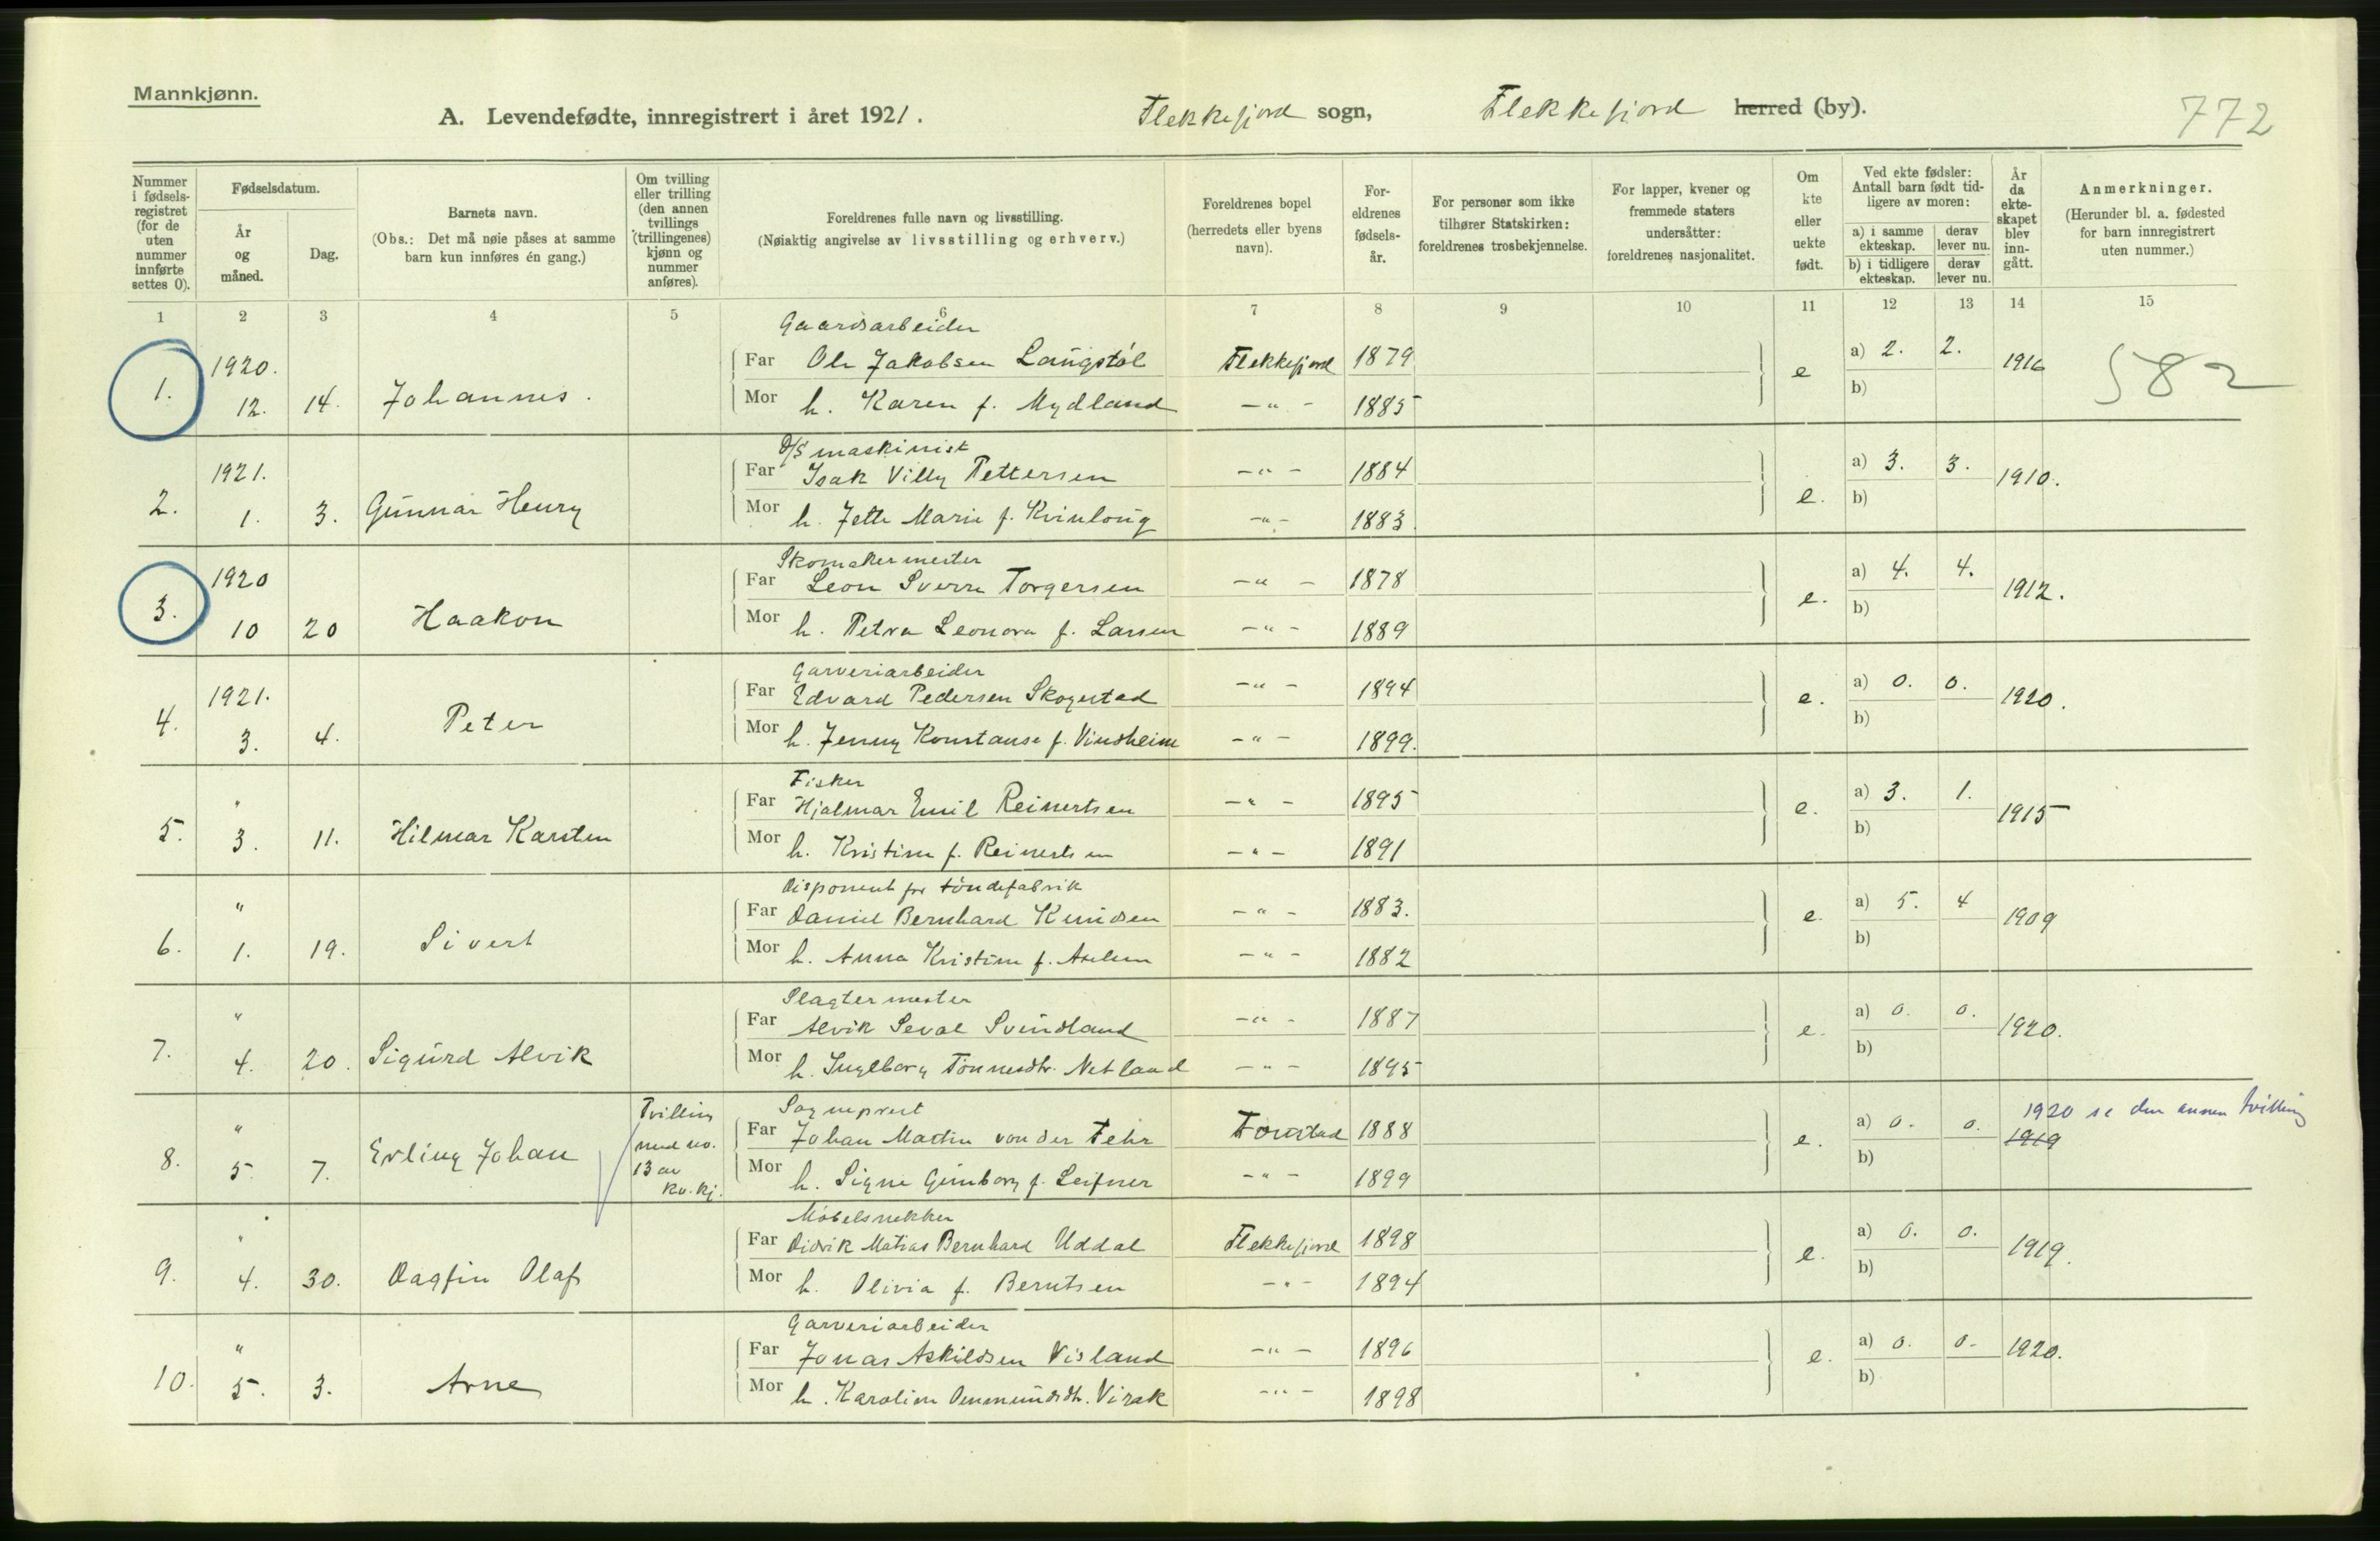 Mannkjønn.
A. Levendefødte, innregistrert i året 1921. Flekkefjord sogn, Flekkefjord herred (by). 772
Nummer i fødsels-registret (for de uten nummer innførte settes 0).
Fødselsdatum.
År og måned.
Dag.
Barnets navn.
(Obs.: Det må nøie påses at samme barn kun innføres én gang.)
Om tvilling eller trilling (den annen tvillings (trillingenes) kjønn og nummer anføres).
Foreldrenes fulle navn og livsstilling.
(Nøiaktig angivelse av livsstilling og erhverv.)
Foreldrenes bopel (herredets eller byens navn).
For-eldrenes fødsels-år.
For personer som ikke tilhører Statskirken: foreldrenes trosbekjennelse.
For lapper, kvener og fremmede staters undersåtter: foreldrenes nasjonalitet.
Om kte eller uekte født.
Ved ekte fødsler: Antall barn født tid-ligere av moren:
a) i samme ekteskap. derav lever nu.
b) i tidligere ekteskap. derav lever nu.
År da ekte-skapet blev inn-gått.
Anmerkninger.
(Herunder bl. a. fødested for barn innregistrert uten nummer.)
1 2 3 4 5 6 7 8 9 10 11 12 13 14 15
Gaardsarbeider
1920. Far Ole Jakobsen Langstöl Flekkefjord 1879 a) 2. 2.
1. 12. 14. Johannes. Mor h. Karen f. Mydland –"– 1885 e b) 1916 582
D/S maskinist
1921. Far Isak Villy Pettersen –"– 1884 a) 3. 3.
2. 1. 3. Gunnar Henry Mor h. Jette Marie f. Kvinloug –"– 1883. e. b) 1910.
Skomakermester
1920 Far Leon Sverre Torgersen –"– 1878 a) 4. 4.
3. 10 20 Haakon Mor h. Petra Leonora f. Larsen –"– 1889 e. b) 1912.
Garveriarbeider
1921. Far Edvard Pedersen Skogestad –"– 1894 a) 0. 0.
4. 3. 4. Peter Mor h. Jenny Konstanse f. Vindheim –"– 1899. e. b) 1920.
Fisker
" Far Hjalmar Emil Reinertsen –"– 1895 a) 3. 1.
5. 3. 11. Hilmar Karsten Mor h. Kristine f. Reinertsen –"– 1891 e. b) 1915
Disponent for töndefabrik
" Far Daniel Bernhard Knudsen –"– 1883. a) 5. 4
6. 1. 19. Sivert Mor h. Anna Kristine f. Axelsen –"– 1882 e. b) 1909
Slagtermester
" Far Alvik Seval Svindland –"– 1887 a) 0. 0.
7. 4. 20. Sigurd Alvik Mor h. Ingeborg Tönnesdtr. Netland –"– 1895 e. b) 1920.
Tvilling med no. 13 av kv.kj.
Sogneprest 1920 se den annen tvilling
" Far Johan Martin von der Fehr Tonstad 1888 a) 0. 0. 1919
8. 5. 7. Erling Johan Mor h. Signe Gunborg f. Leifner –"– 1899 e. b)
Möbelsnekker
" Far Didrik Matias Bernhard Uddal Flekkefjord 1898 a) 0. 0.
9. 4. 30. Dagfin Olaf Mor h. Olivia f. Berntsen –"– 1894 e. b) 1919.
Garveriarbeider
" Far Jonas Askildsen Visland –"– 1896 a) 0. 0.
10. 5. 3. Arne Mor h. Karoline Ommundsdtr. Virak –"– 1898 e. b) 1920.